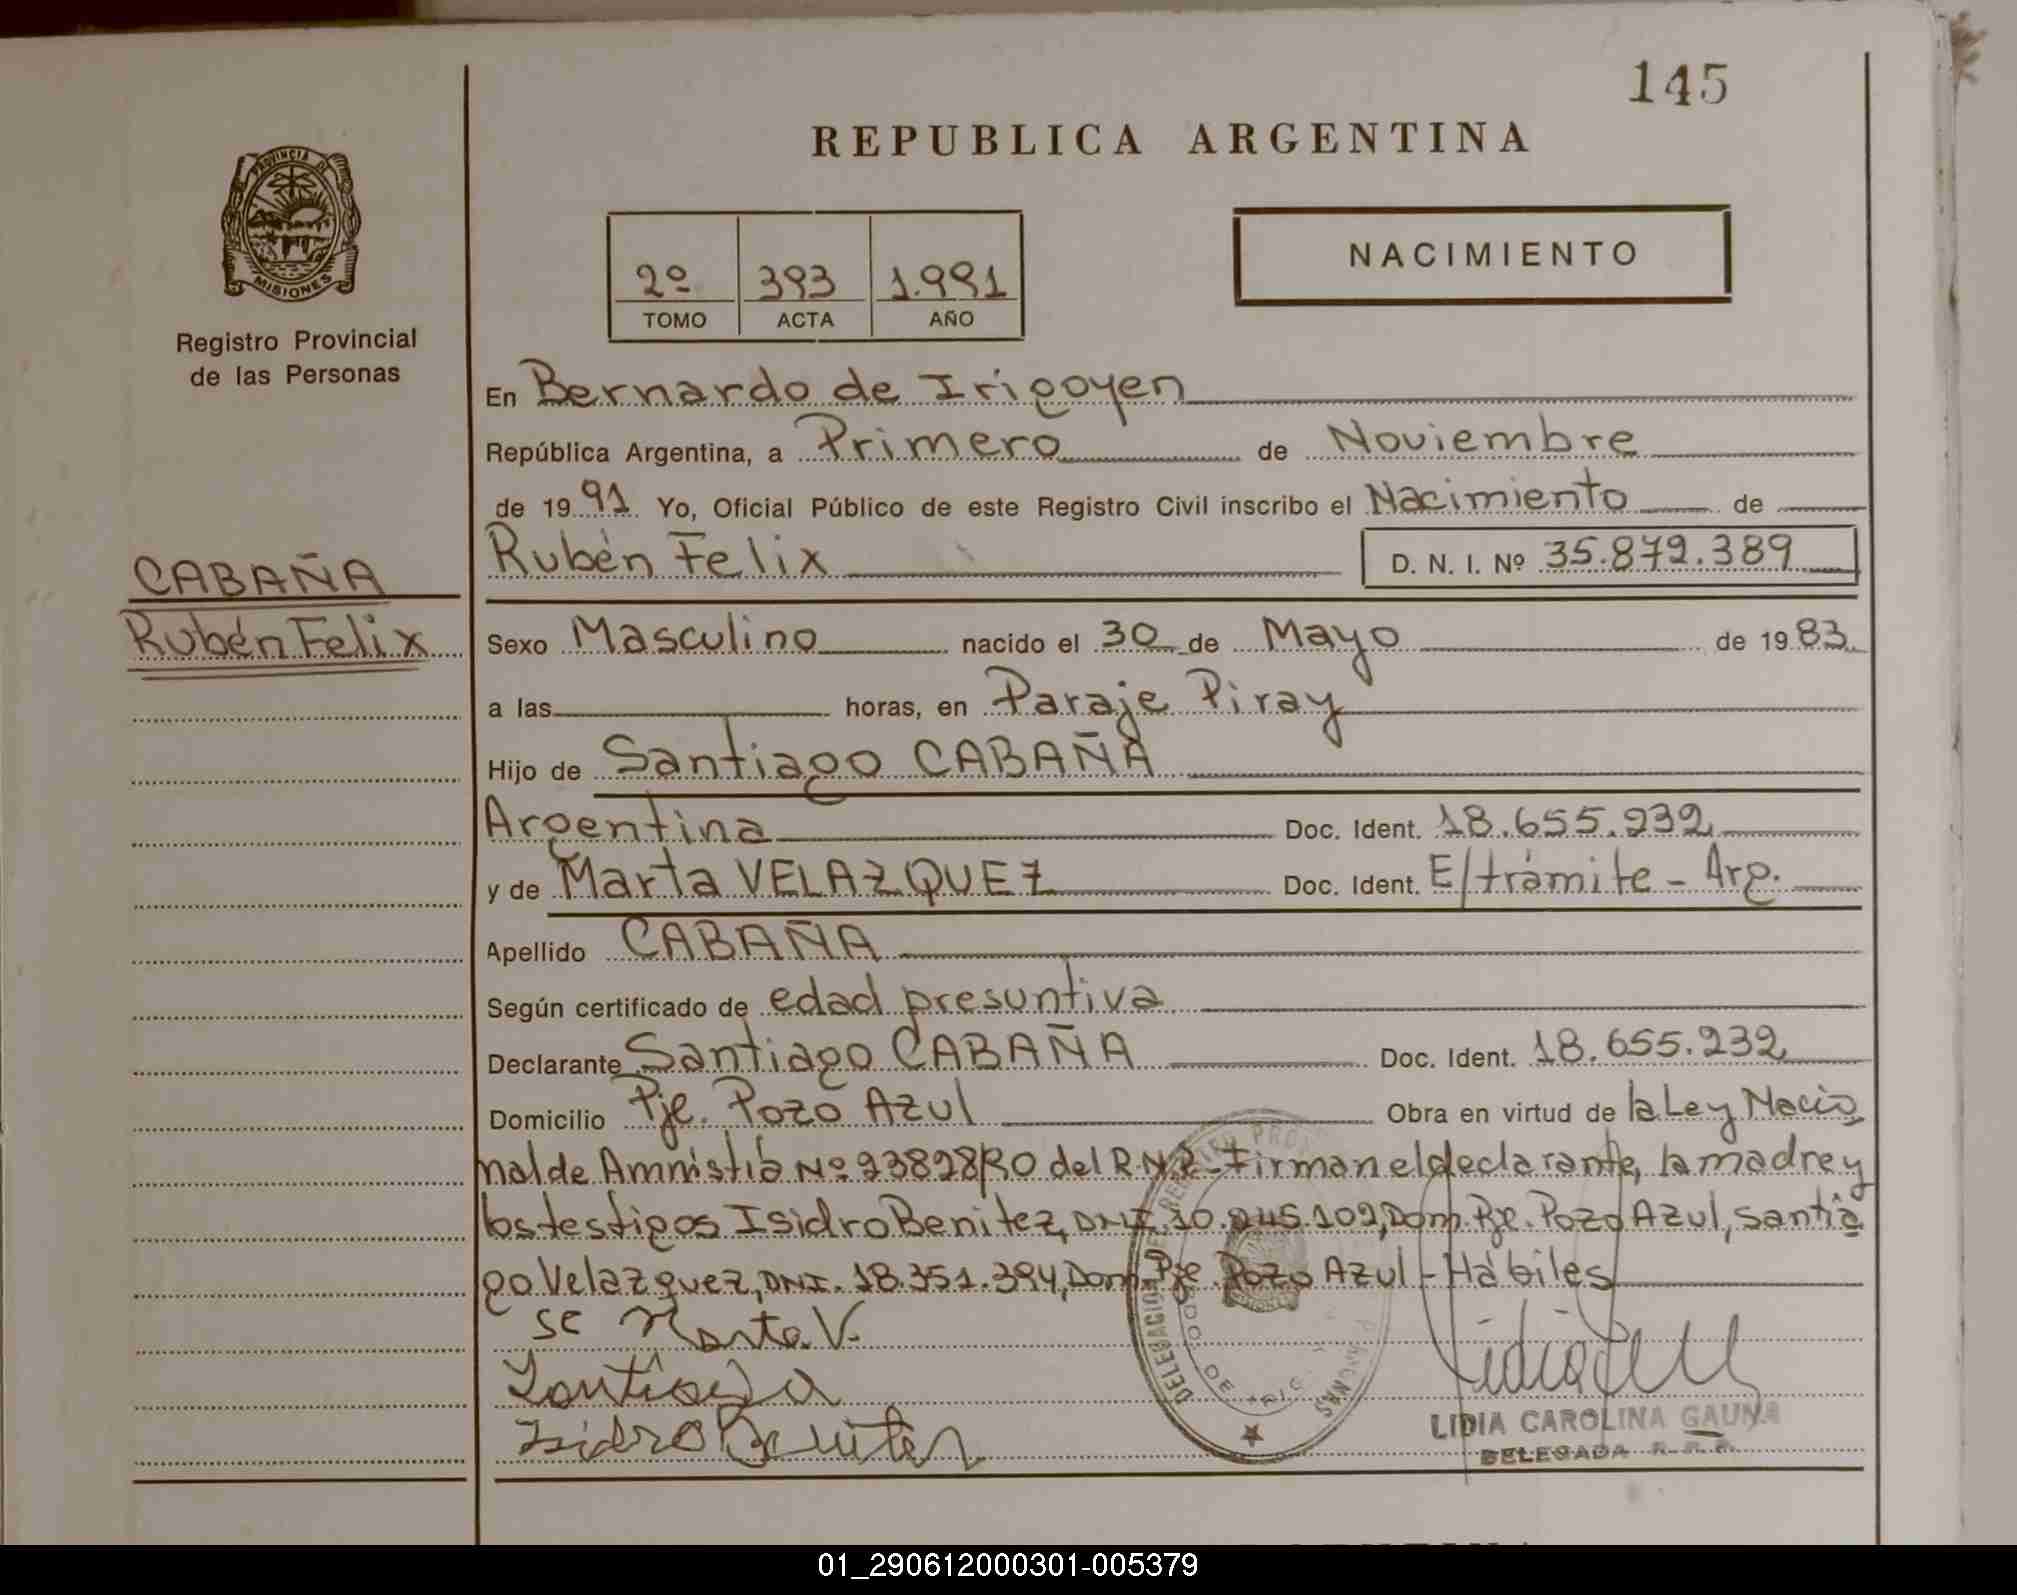 145
REPUBLICA ARGENTINA
PROVINCIA DE
MISIONES
Registro Provincial
de las Personas
2º 393 1.991
TOMO ACTA AÑO
NACIMIENTO
En Bernardo de Irigoyen
República Argentina, a Primero de Noviembre
de 1991 Yo, Oficial Público de este Registro Civil inscribo el Nacimiento de
Rubén Felix D. N. I. Nº 35.872.389
CABAÑA
Rubén Felix
Sexo Masculino nacido el 30 de Mayo de 1983
a las horas, en Paraje Piray
Hijo de Santiago CABAÑA
Argentina Doc. Ident. 18.655.232
y de Marta VELAZQUEZ Doc. Ident. E/trámite - Arg.
Apellido CABAÑA
Según certificado de edad presuntiva
Declarante Santiago CABAÑA Doc. Ident. 18.655.232
Domicilio Pje. Pozo Azul Obra en virtud de la Ley Nacio
nal de Amnistia Nº 23828/90 del R.N.P. - Firman el declarante, la madre y
los testigos Isidro Benitez, DNI. 109, Dom. Pje. Pozo Azul, Santia
go Velazquez, DNI. 18.351.394, Dom. Pje. Pozo Azul - Hábiles
SC Marta V.
Isidro Benitez
LIDIA CAROLINA GAUNA
DELEGADA R. P. P.
01_290612000301-005379